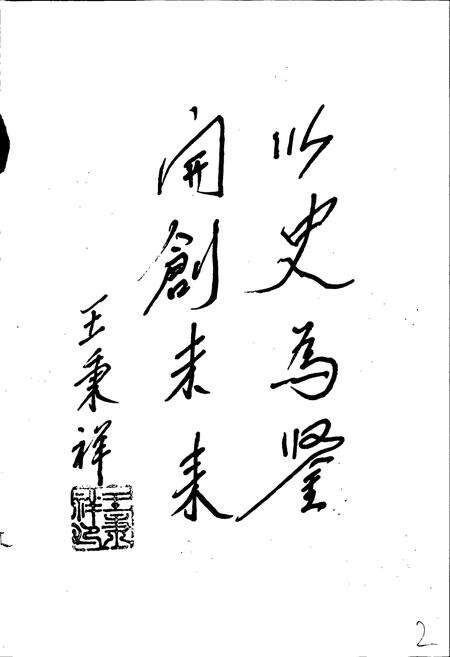 以史為鉴
開創未来
王秉祥
王秉祥印
2